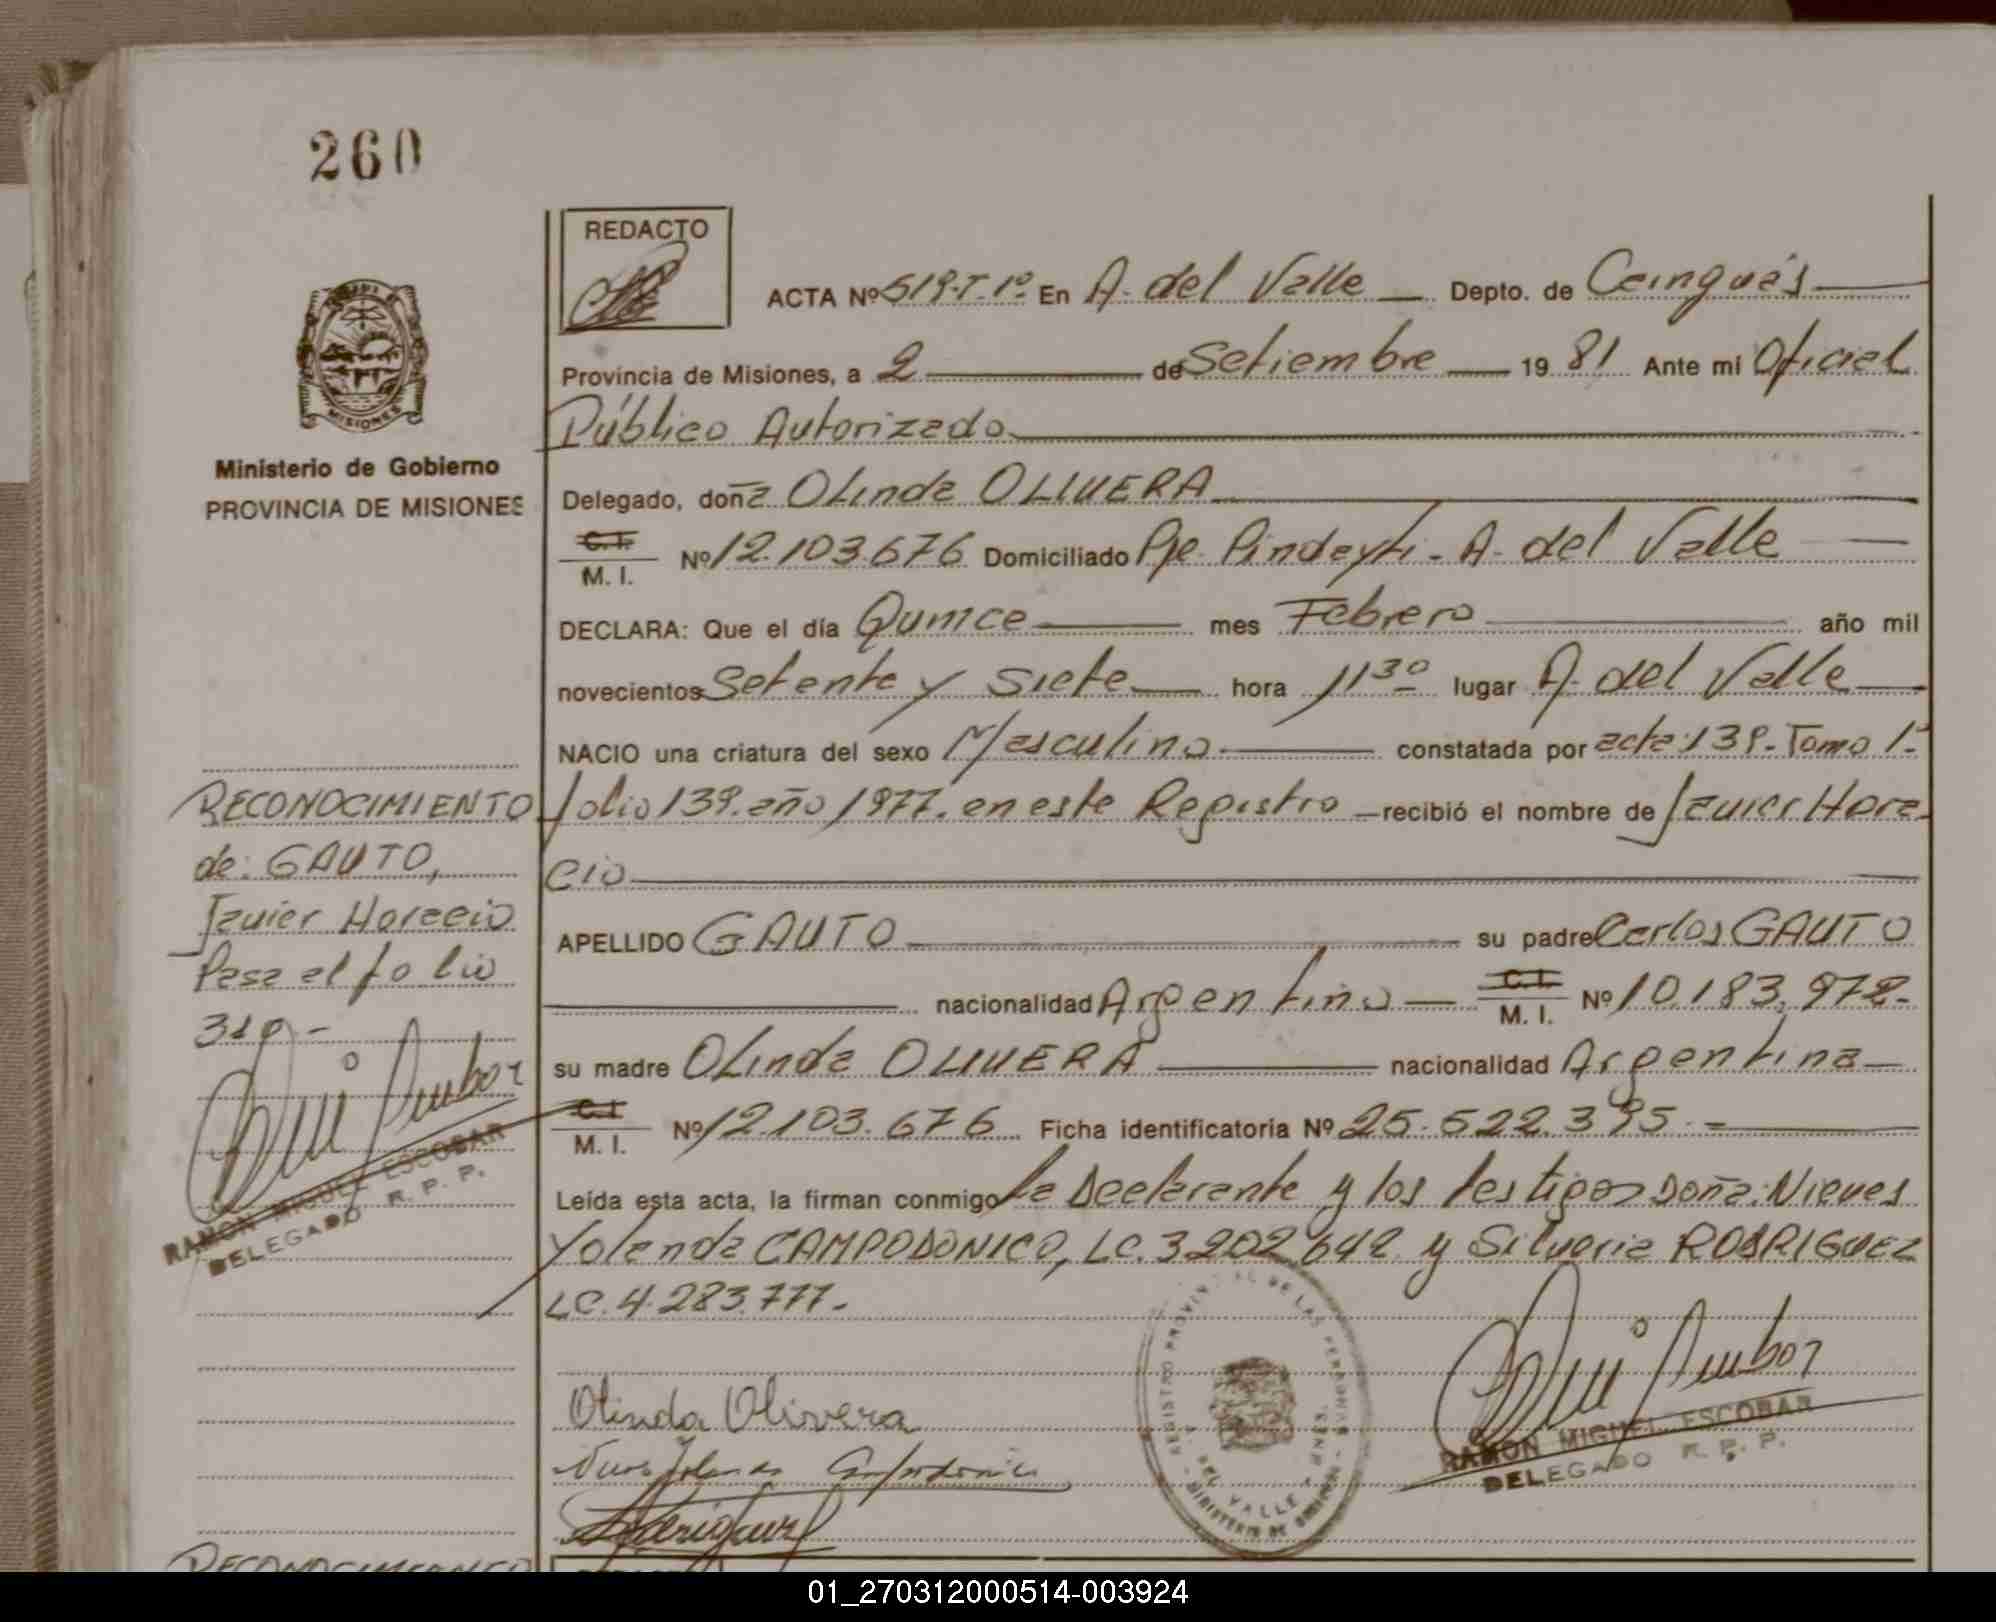 260
REDACTO
ACTA Nº 519-T.1º En A. del Valle Depto. de Cainguás
Provincia de Misiones, a 2 de Setiembre 1981 Ante mi Oficial
Público Autorizado
Delegado, doña Olinda OLIVERA
C.I.
M. I. Nº 12.103.676 Domiciliado Pje. Pindayti - A. del Valle
DECLARA: Que el día Quince mes Febrero año mil
novecientos Setenta y Siete hora 11 30 lugar A. del Valle
NACIO una criatura del sexo Masculino constatada por acta: 139. Tomo 1º
folio 139. año 1977. en este Registro recibió el nombre de Javier Hora-
cio
APELLIDO GAUTO su padre Carlos GAUTO
nacionalidad Argentino C.I.
M. I. Nº 10.183.972.-
su madre Olinda OLIVERA nacionalidad Argentina
C.I.
M. I. Nº 12.103.676 Ficha identificatoria Nº 25.522.395.-
Leída esta acta, la firman conmigo la Declarante y los testigos Doña: Nieves
Yolanda CAMPODONICO, LC. 3.202.642. y Silveria RODRIGUEZ
LC. 4.283.777.-
Olinda Olivera
REGISTRO PROVINCIAL DE LAS PERSONAS
A. DEL VALLE - MNES.
MINISTERIO DE GOBIERNO
RAMON MIGUEL ESCOBAR
DELEGADO R. P. P.
MISIONES
Ministerio de Gobierno
PROVINCIA DE MISIONES
RECONOCIMIENTO
de: GAUTO,
Javier Horacio
Pasa al folio
RAMON MIGUEL ESCOBAR
DELEGADO R. P. P.
RECONOCIMIENTO
REDACTO
01_270312000514-003924